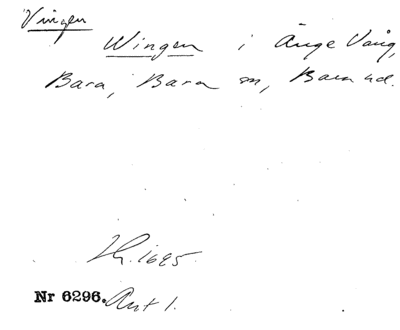 Vingen
Wingen i Änge Vång,
Bara, Bara sn, Bara hd.
Lh. 1695.
Nr 6296. Avt 1.